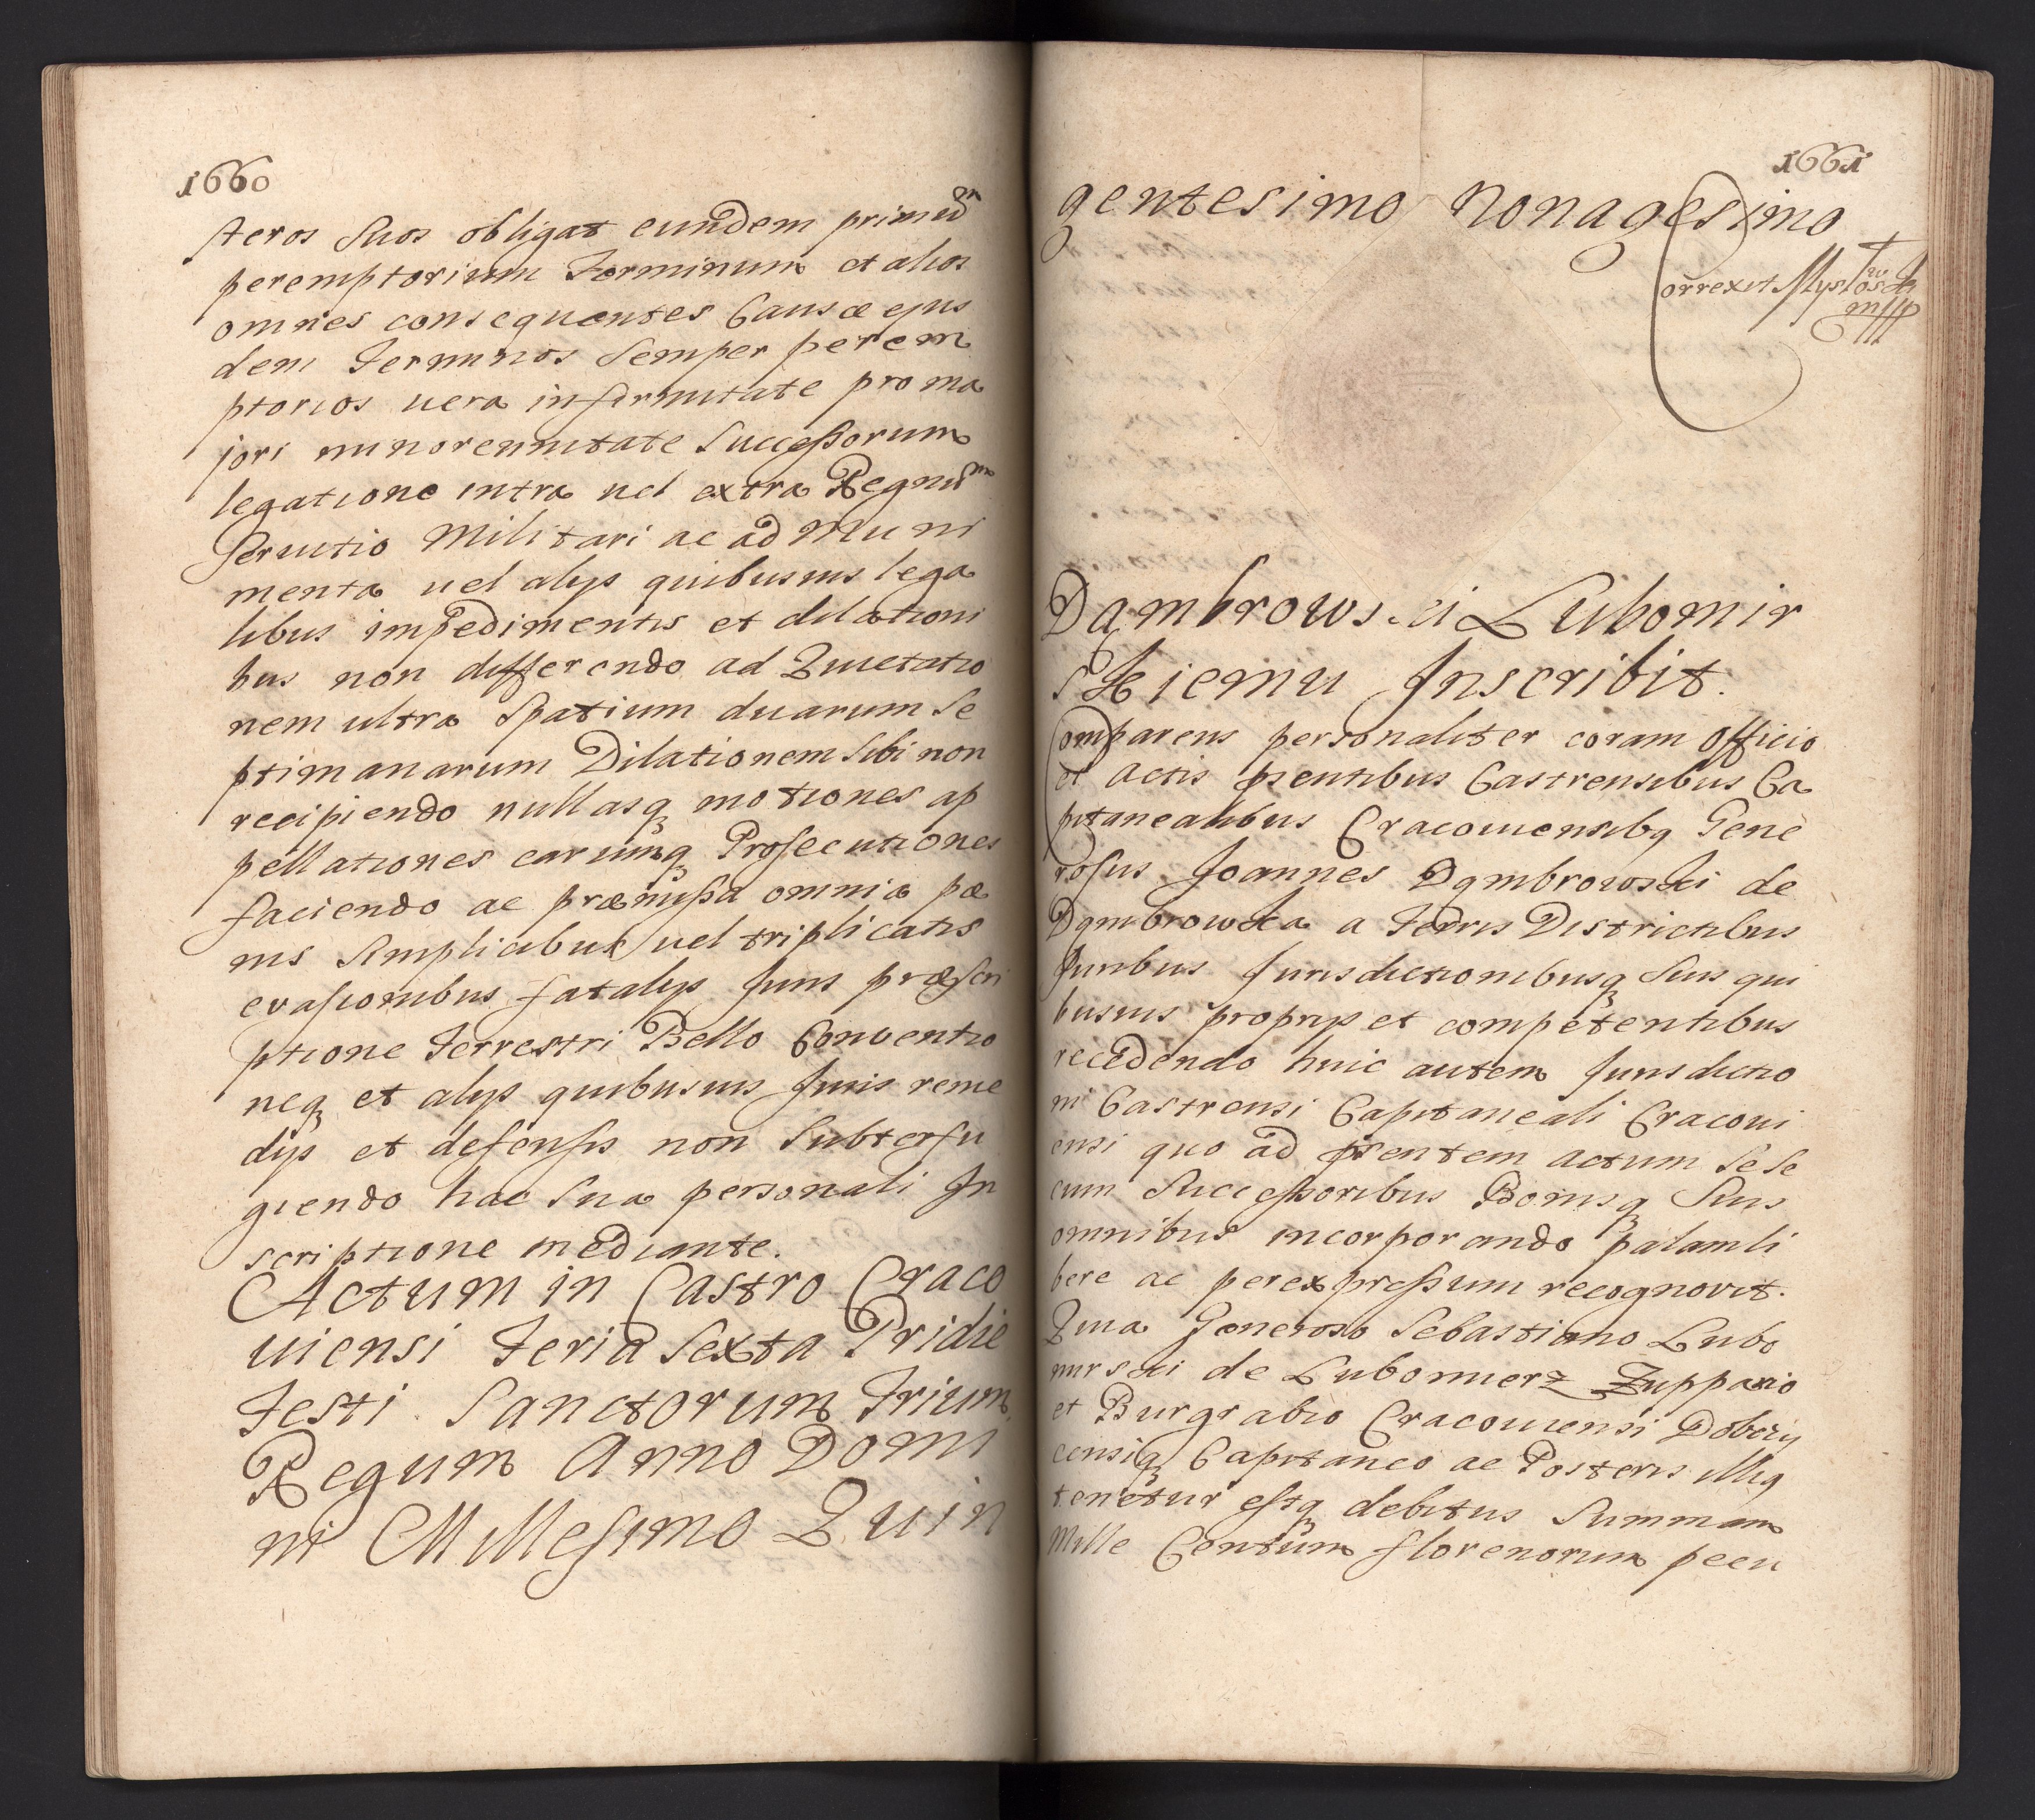 1660
steros Suos obligat eundem primũ
peremptorium Terminum et alios
omnes consequentes Causæ ejus
dem Terminos Semper perem
ptorios vera infirmitate pro ma
jori minorennitate Successorum
legatione intra vel extra Regnũ
Servitio Militari ac ad Muni
menta vel alijs quibusvis lega
libus impedimentis et dilationi
bus non differendo ad Quietatio
nem ultra Spatium duarum Se
ptimanarum Dilationem Sibi non
recipiendo nullasq motiones ap
pellationes earumq Prosecutiones
faciendo ac præmissa omnia pæ
nis Simplicibus vel triplicatis
evasionibus fatalijs Juris præscri
ptione Terrestri Bello Conventio
neq et alijs quibusvis Juris reme
dijs et defensis non Subterfu
giendo hac Sua personali In
scriptione mediante.
Actum in Castro Craco
viensi Feria Sexta Pridie
Festi Sanctorum Trium
Regum Anno Domi
ni Millesimo Quin
1661
gentesimo Nonagesimo
Correxit
mpp
Dąmbrowski Lubomir
skiemu Inscribit.
Comparens personaliter coram Officio
et Actis pñtibus Castrensibus Ca
pitanealibus Cracoviensibq Gene
rosus Joannes Dąmbrowski de
Dąmbrowka a Terris Districtibus
Juribus Jurisdictionibusq Suis qui
busvis proprijs et competentibus
recedendo huic autem Jurisdictio
ni Castrensi Capitaneali Cracovi
ensi quo ad pñtem actum Sese
cum Successoribus Bonisq Suis
omnibus incorporando palam li
bere ac per expressum recognovit.
Quia Generoso Sebastiano Lubo
mirski de Lubomierz Zuppario
et Burgrabio Cracoviensi Dobczy
censiq Capitaneo ac Posteris illiq
tenetur estq debitus Summam
Mille Centum florenorum pecu